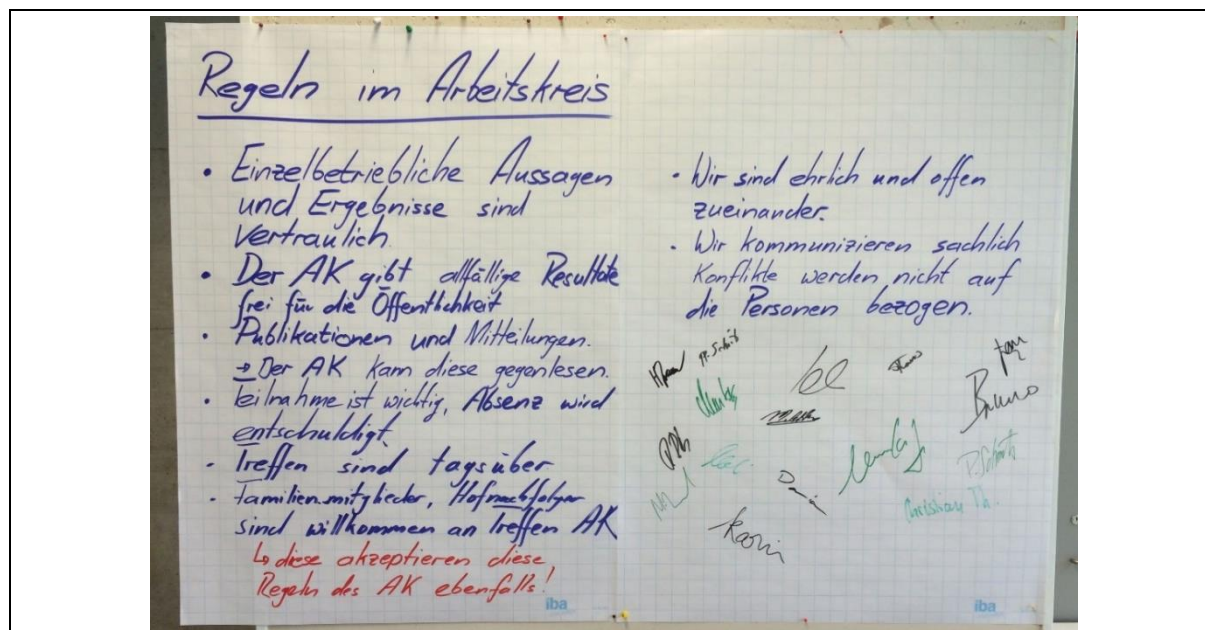 Regeln im Arbeitskreis
• Einzelbetriebliche Aussagen
und Ergebnisse sind
vertraulich.
• Der AK gibt allfällige Resultate
frei für die Öffentlichkeit
• Publikationen und Mitteilungen.
→ Der AK kann diese gegenlesen.
• Teilnahme ist wichtig, Absenz wird
entschuldigt.
• Treffen sind tagsüber
• Familienmitglieder, Hofnachfolger
sind willkommen an Treffen AK
↳ diese akzeptieren diese
Regeln des AK ebenfalls!
iba
• Wir sind ehrlich und offen
zueinander.
• Wir kommunizieren sachlich
Konflikte werden nicht auf
die Personen bezogen.
Bruno
Christian Th.
Karin
iba